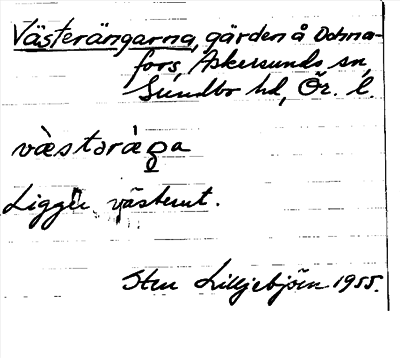 Västerängarna, gärden å Dohna-
fors, Askersunds sn,
Sundbo hd, Ör. l.
væ̀stəræ̀ŋa
Ligger västerut.
Sten Lilljebjörn 1955.